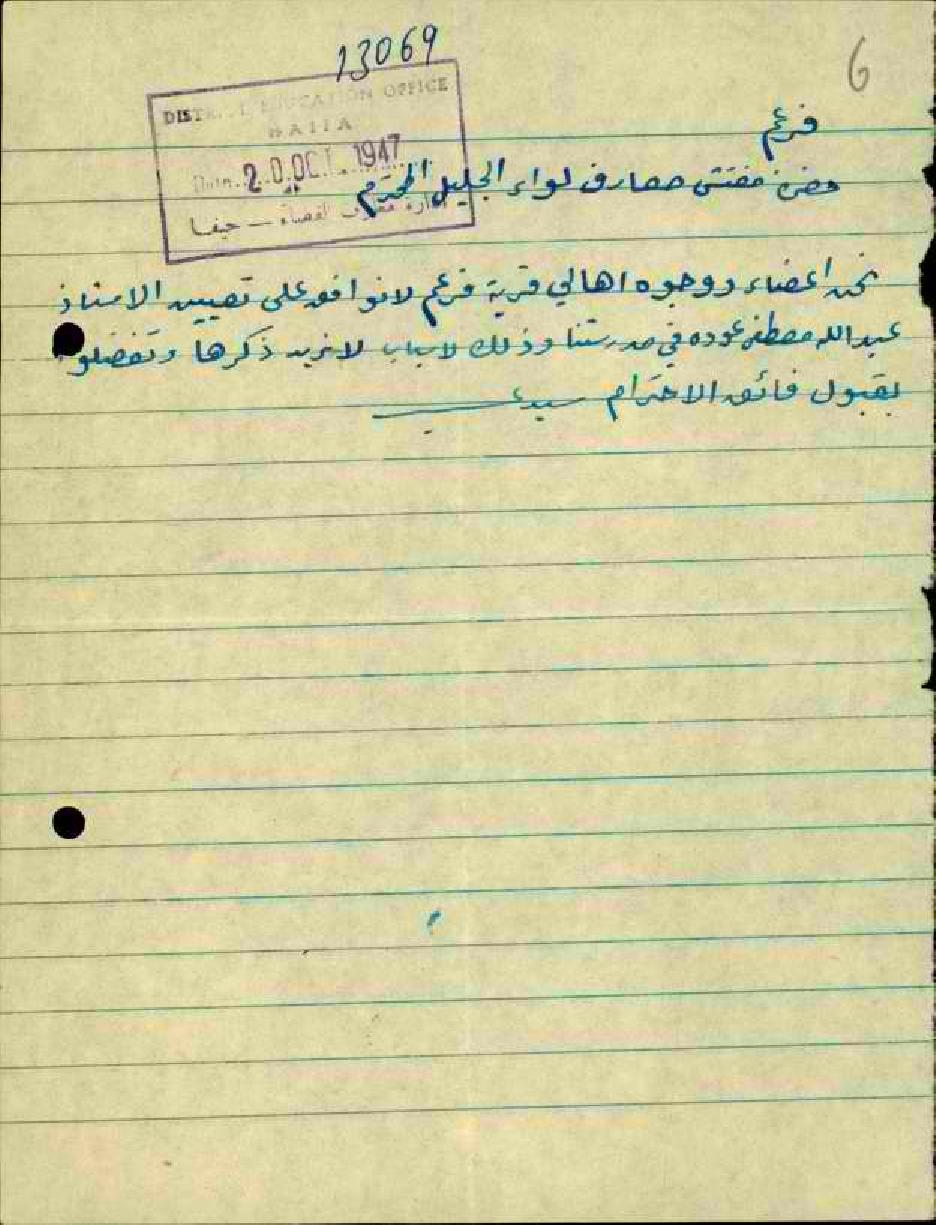 13069
6
DISTRICT EDUCATION OFFICE
HAIFA
Date 20 OCT 1947
ادارة معارف القضاء - حيفا
فرعم
حضرة مفتش معارف لواء الجليل المحترم
نحن اعضاء ووجوه اهالي قرية فرعم لانوافق على تعيين الاستاذ
عبد الله مصطفى عوده في مدرستنا وذلك لاسباب لانريد ذكرها وتفضلو
بقبول فائق الاحترام سيدي